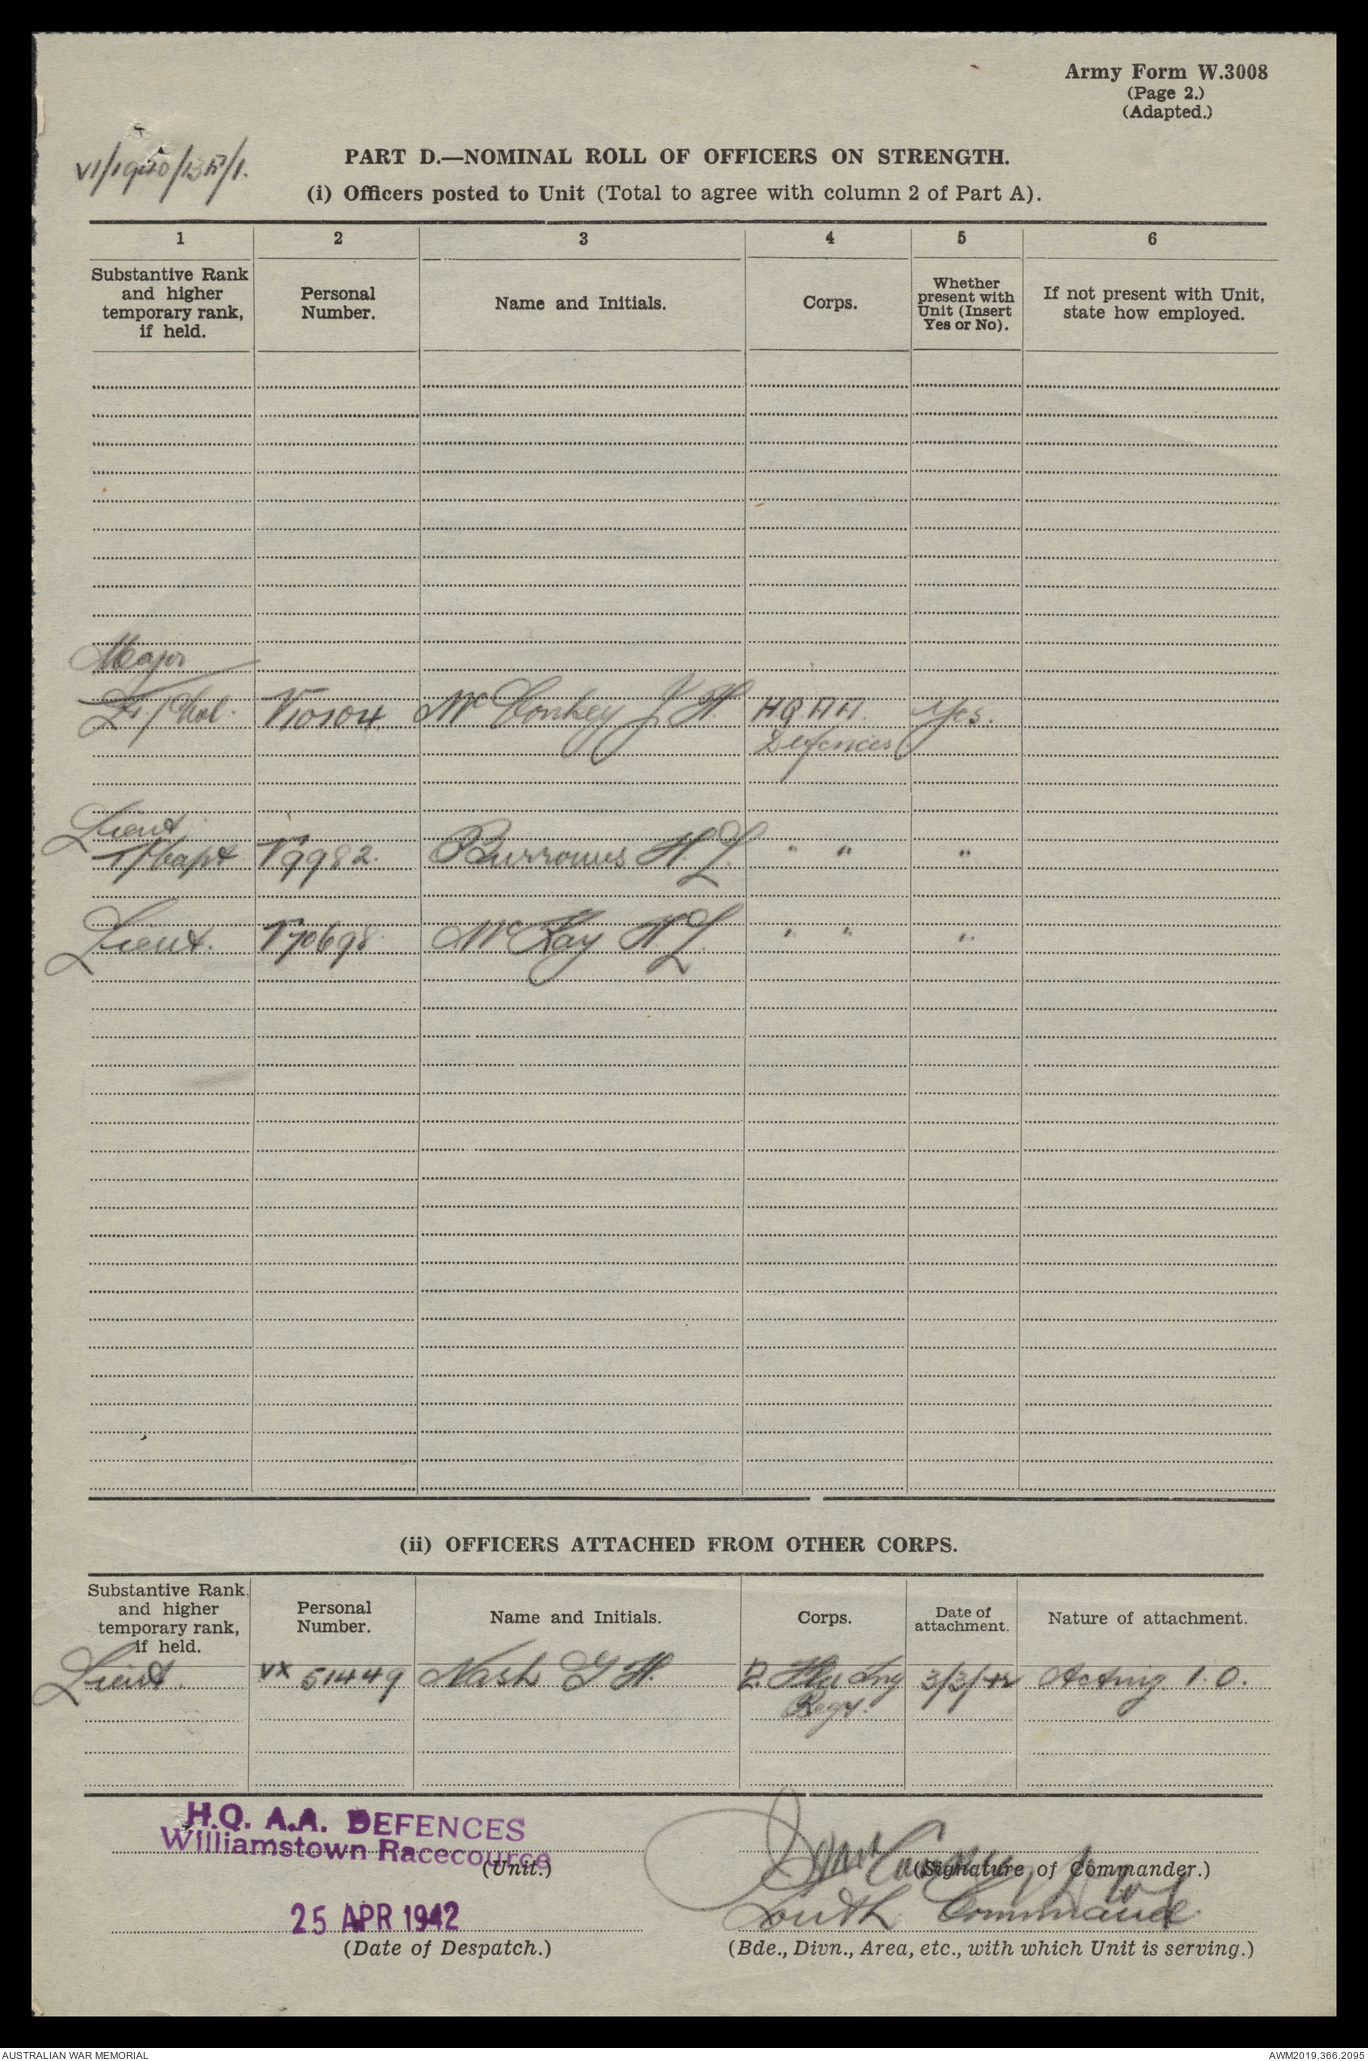 Army Form W.3008
(Page 2.)
(Adapted.)
PART D.—NOMINAL ROLL OF OFFICERS ON STRENGTH.
(i) Officers posted to Unit (Total to agree with column 2 of Part A).
1 2 3 4 5 6
Substantive Rank and higher temporary rank, if held.
Personal Number.
Name and Initials.
Corps.
Whether present with Unit (Insert Yes or No).
If not present with Unit, state how employed.
Major
Lt/Col. V10104 McConkey J H HQ AA Yes.
Defences
Lieut,
T/Capt V9982. Burrows H L " " "
Lieut. V70698 McKay H L " " "
(ii) OFFICERS ATTACHED FROM OTHER CORPS.
Substantive Rank and higher temporary rank, if held.
Personal Number.
Name and Initials.
Corps.
Date of attachment.
Nature of attachment.
Lieut. VX 51449 Nash G H. 3/3/42 Acting I.O.
Regt.
H.Q. A.A. DEFENCES
Williamstown Racecourse
(Unit.)
(Signature of Commander.)
25 APR 1942
South Command
(Date of Despatch.)
(Bde., Divn., Area, etc., with which Unit is serving.)
AUSTRALIAN WAR MEMORIAL
AWM2019.366.2095